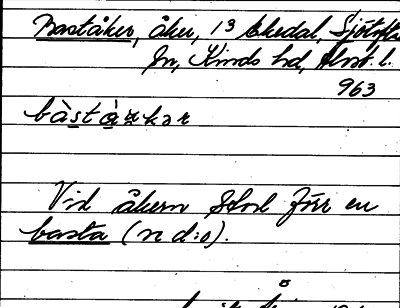 Baståker, åker, 13 Ekedal,
sn, Kinds hd, Älvsb. l.
963
bàstà̱kər
Vid åkern stod förr en
basta (n d:o).